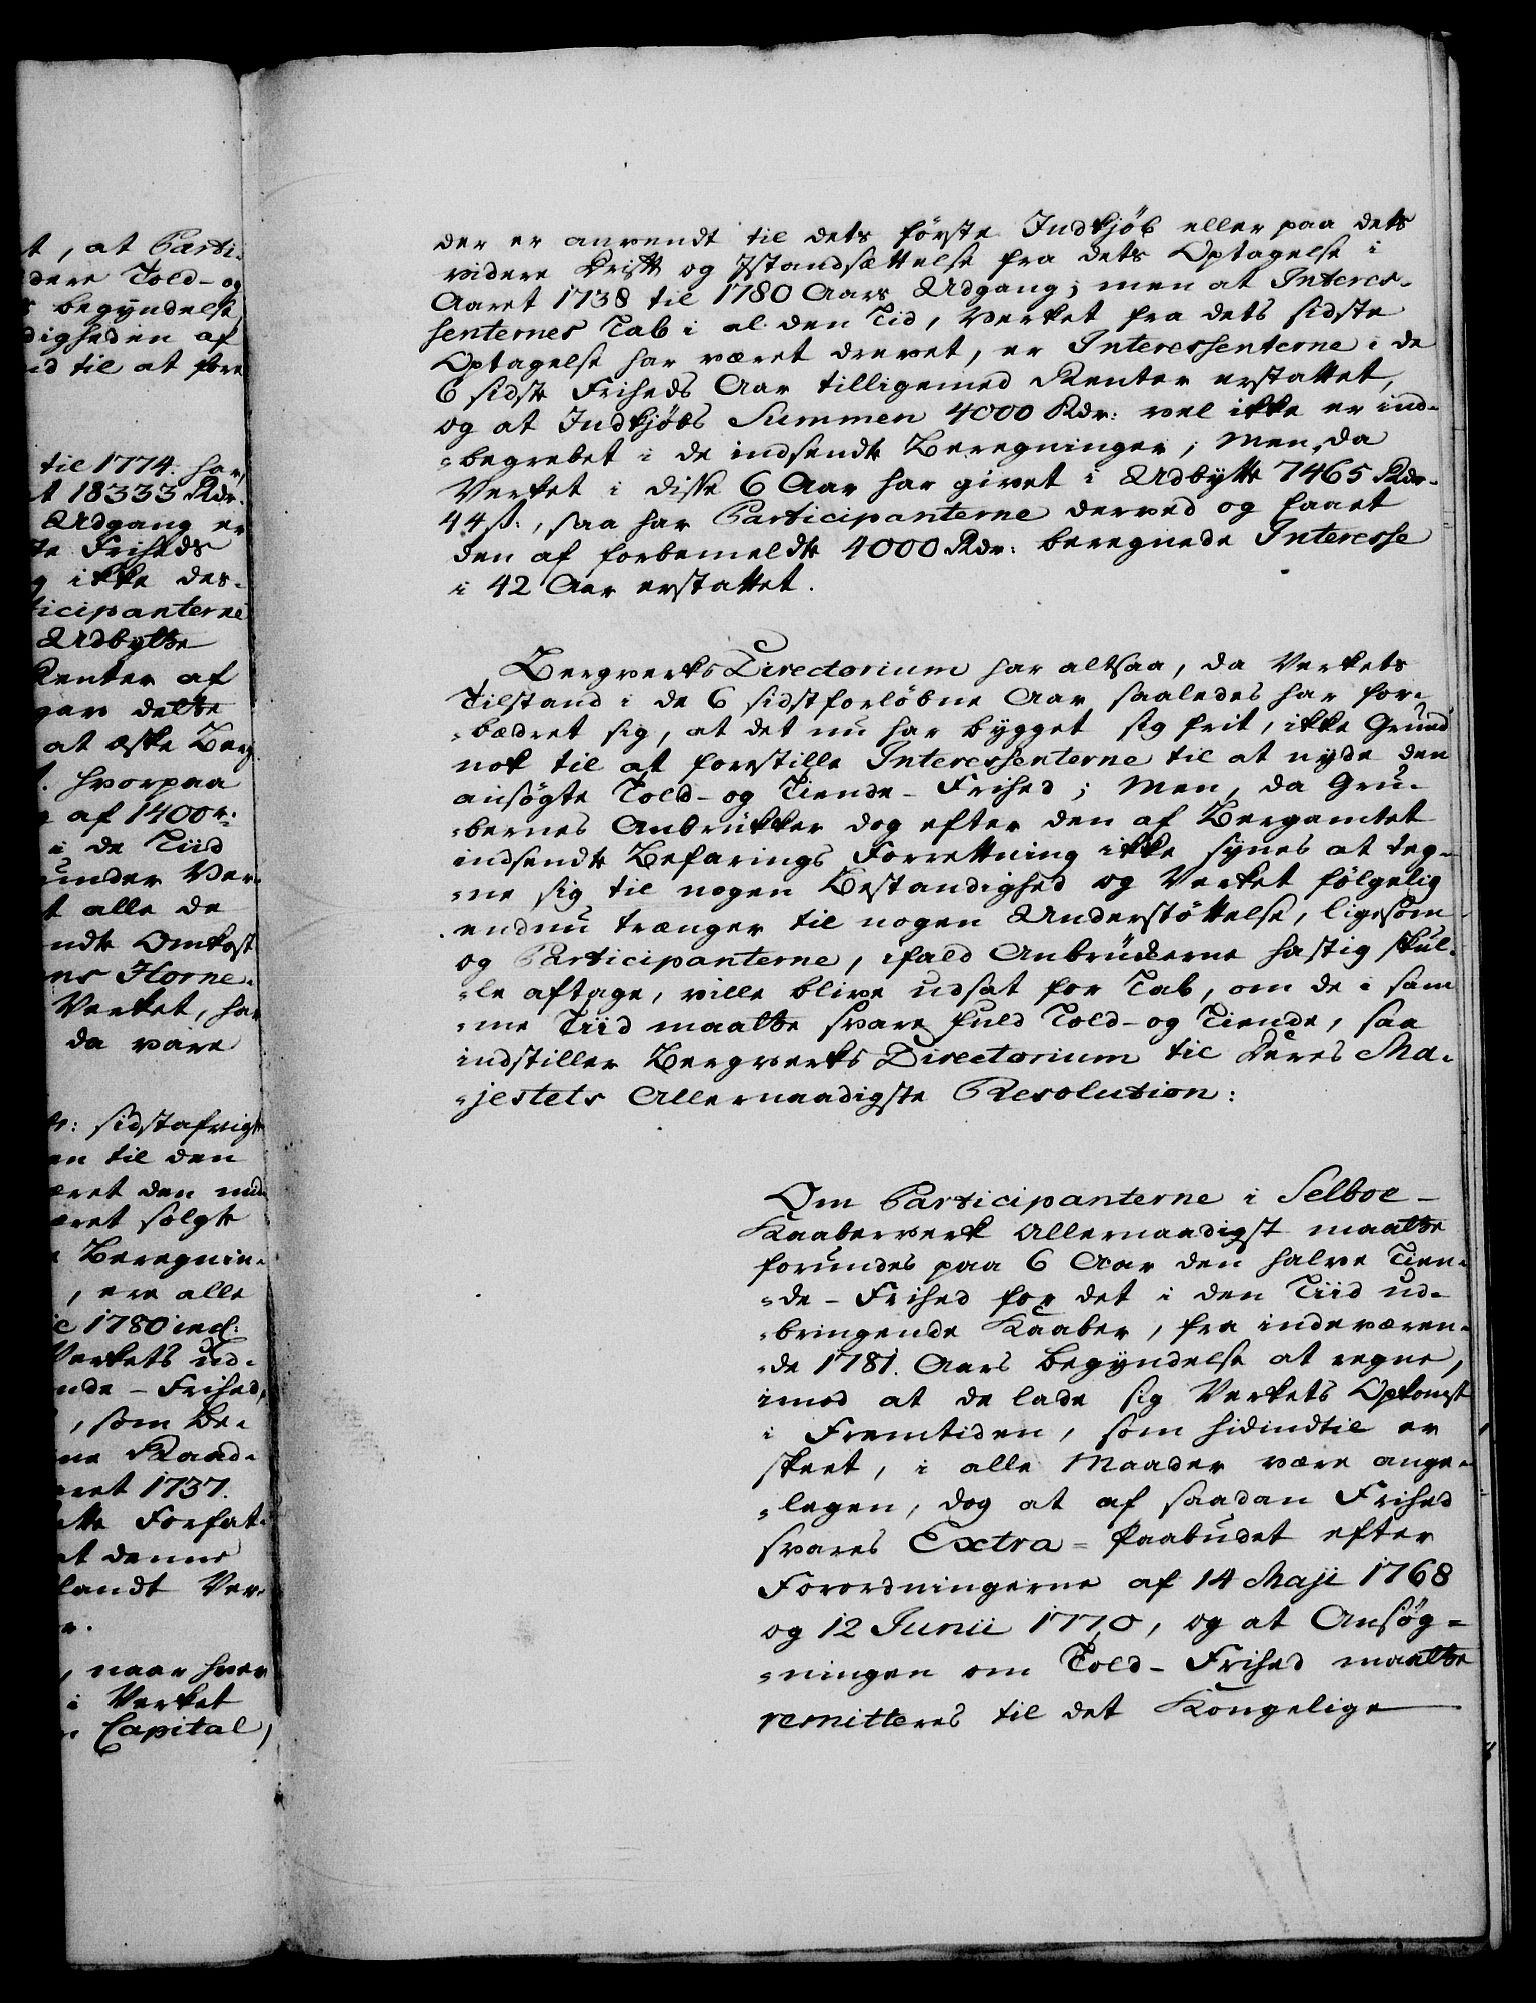 t, at Parti-
dere Told- og
begyndelse
digheden af
id til at fore
til 1774. har
t 18333 Rdr.
Udgang er
te Friheds
g ikke des-
ticipanterne
Udbytte
Renter af
gav dette
at æske Berg
hvorpaa
af 1400 r:
i de Tiid
under Ver-
t alle de
ndte Omkost
ns Horne-
Verket, har
da vare
sidstafvigte
en til den
æret den
æret solgte
Beregnin-
, ere alle
1780 incl:
Verkets ud-
nde-Frihed,
, som Be-
ne Raad-
aret 1737.
Forfat-
at denne
landt Ver-
, naar hver
i Verket
Capital)
der er anvendt til dets første Indkjöb eller paa dets
videre Drift og Istandsættelse fra dets Optagelse i
Aaret 1738 til 1780 Aars Udgang; men at Interes-
senternes Tab i al den Tid, Verket fra dets sidste
Optagelse har været drevet, er Interessenterne i de
6 sidste Friheds Aar tilligemed Renter erstattet,
og at Indkjöbs Summen 4000 Rdr: vel ikke er ind-
-begrebet i de indsendte Beregninger, men, da
Verket i disse 6 Aar har givet i Udbytte 7465 Rdr.
44 ß:, saa har Participanterne derved og faaet
den af forbemeldte 4000 Rdr: beregnede Interesse
i 42 Aar erstattet.
Bergverks Directorium har altsaa, da Verkets
Tilstand i de 6 sidstforløbne Aar saaledes har for-
-bædret sig, at det nu har bygget sig frit, ikke Grund
nok til at forestille Interessenterne til at nyde den
ansøgte Told- og Tiende-Frihed; Men, da Gru-
-bernes Anbrükker dog efter den af Bergamtet
indsendte Befarings Forrettning ikke synes at teg-
-ne sig til nogen Bestandighed og Verket følgelig
endnu trænger til nogen Understöttelse, ligesom
og Participanterne, ifald Anbrückerne hastig skul-
-le aftage, ville blive udsat for Tab, om de i sam
-me Tiid maatte svare fuld Told- og Tiende, saa
indstiller Bergverks Directorium til Deres Ma-
-jestets Allernaadigste Resolution:
Om Participanterne i Selboe-
Kaaberverk Allernaadigst maatte
forundes paa 6 Aar den halve Tien-
-de-Frihed for det i den Tiid ud-
-bringende Kaaber, fra indeværen-
-de 1781. Aars Begyndelse at regne,
imod at de lade sig Verkets Opkomst
i Fremtiden, som hidindtil er
skeet, i alle Maader være ange-
-legen, dog at af saadan Frihed
svares Extra-Paabudet efter
Forordningerne af 14 Maji 1768
og 12 Junii 1770, og at Ansøg-
-ningen om Told-Frihed maatte
remitteres til det Kongelige